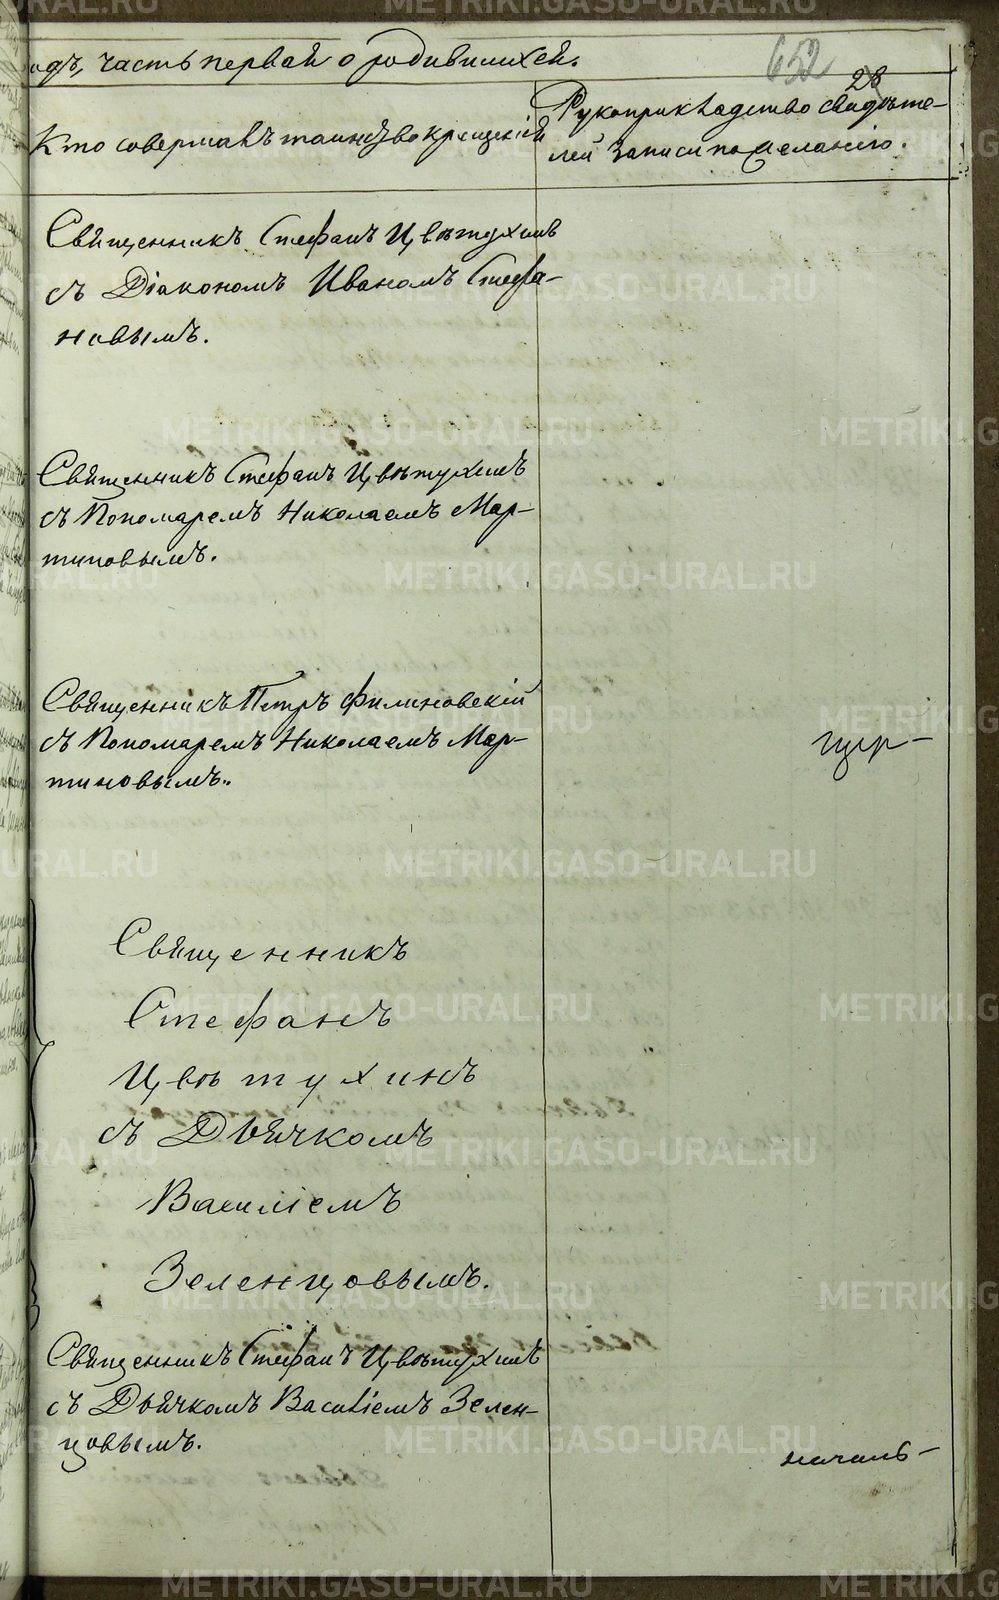 одъ, часть первая о родившихся.
652
28
Кто совершалъ таинство крещенія
Рукоприкладство свидѣте-
лей записи по желанію.
Священникъ Стефанъ Цвѣтухинъ
съ Діакономъ Иваномъ Стефа-
новымъ.
Священникъ Стефанъ Цвѣтухинъ
съ Пономаремъ Николаемъ Мар-
тиновымъ.
Священникъ Петръ Филиновскій
съ Пономаремъ Николаемъ Мар-
тиновымъ.
Священникъ
Стефанъ
Цвѣтухинъ
съ Дьячкомъ
Василіемъ
Зеленцовымъ.
Священникъ Стефанъ Цвѣтухинъ
съ Дьячкомъ Василіемъ Зелен-
цовымъ.
началь-
METRIKI.GASO-URAL.RU